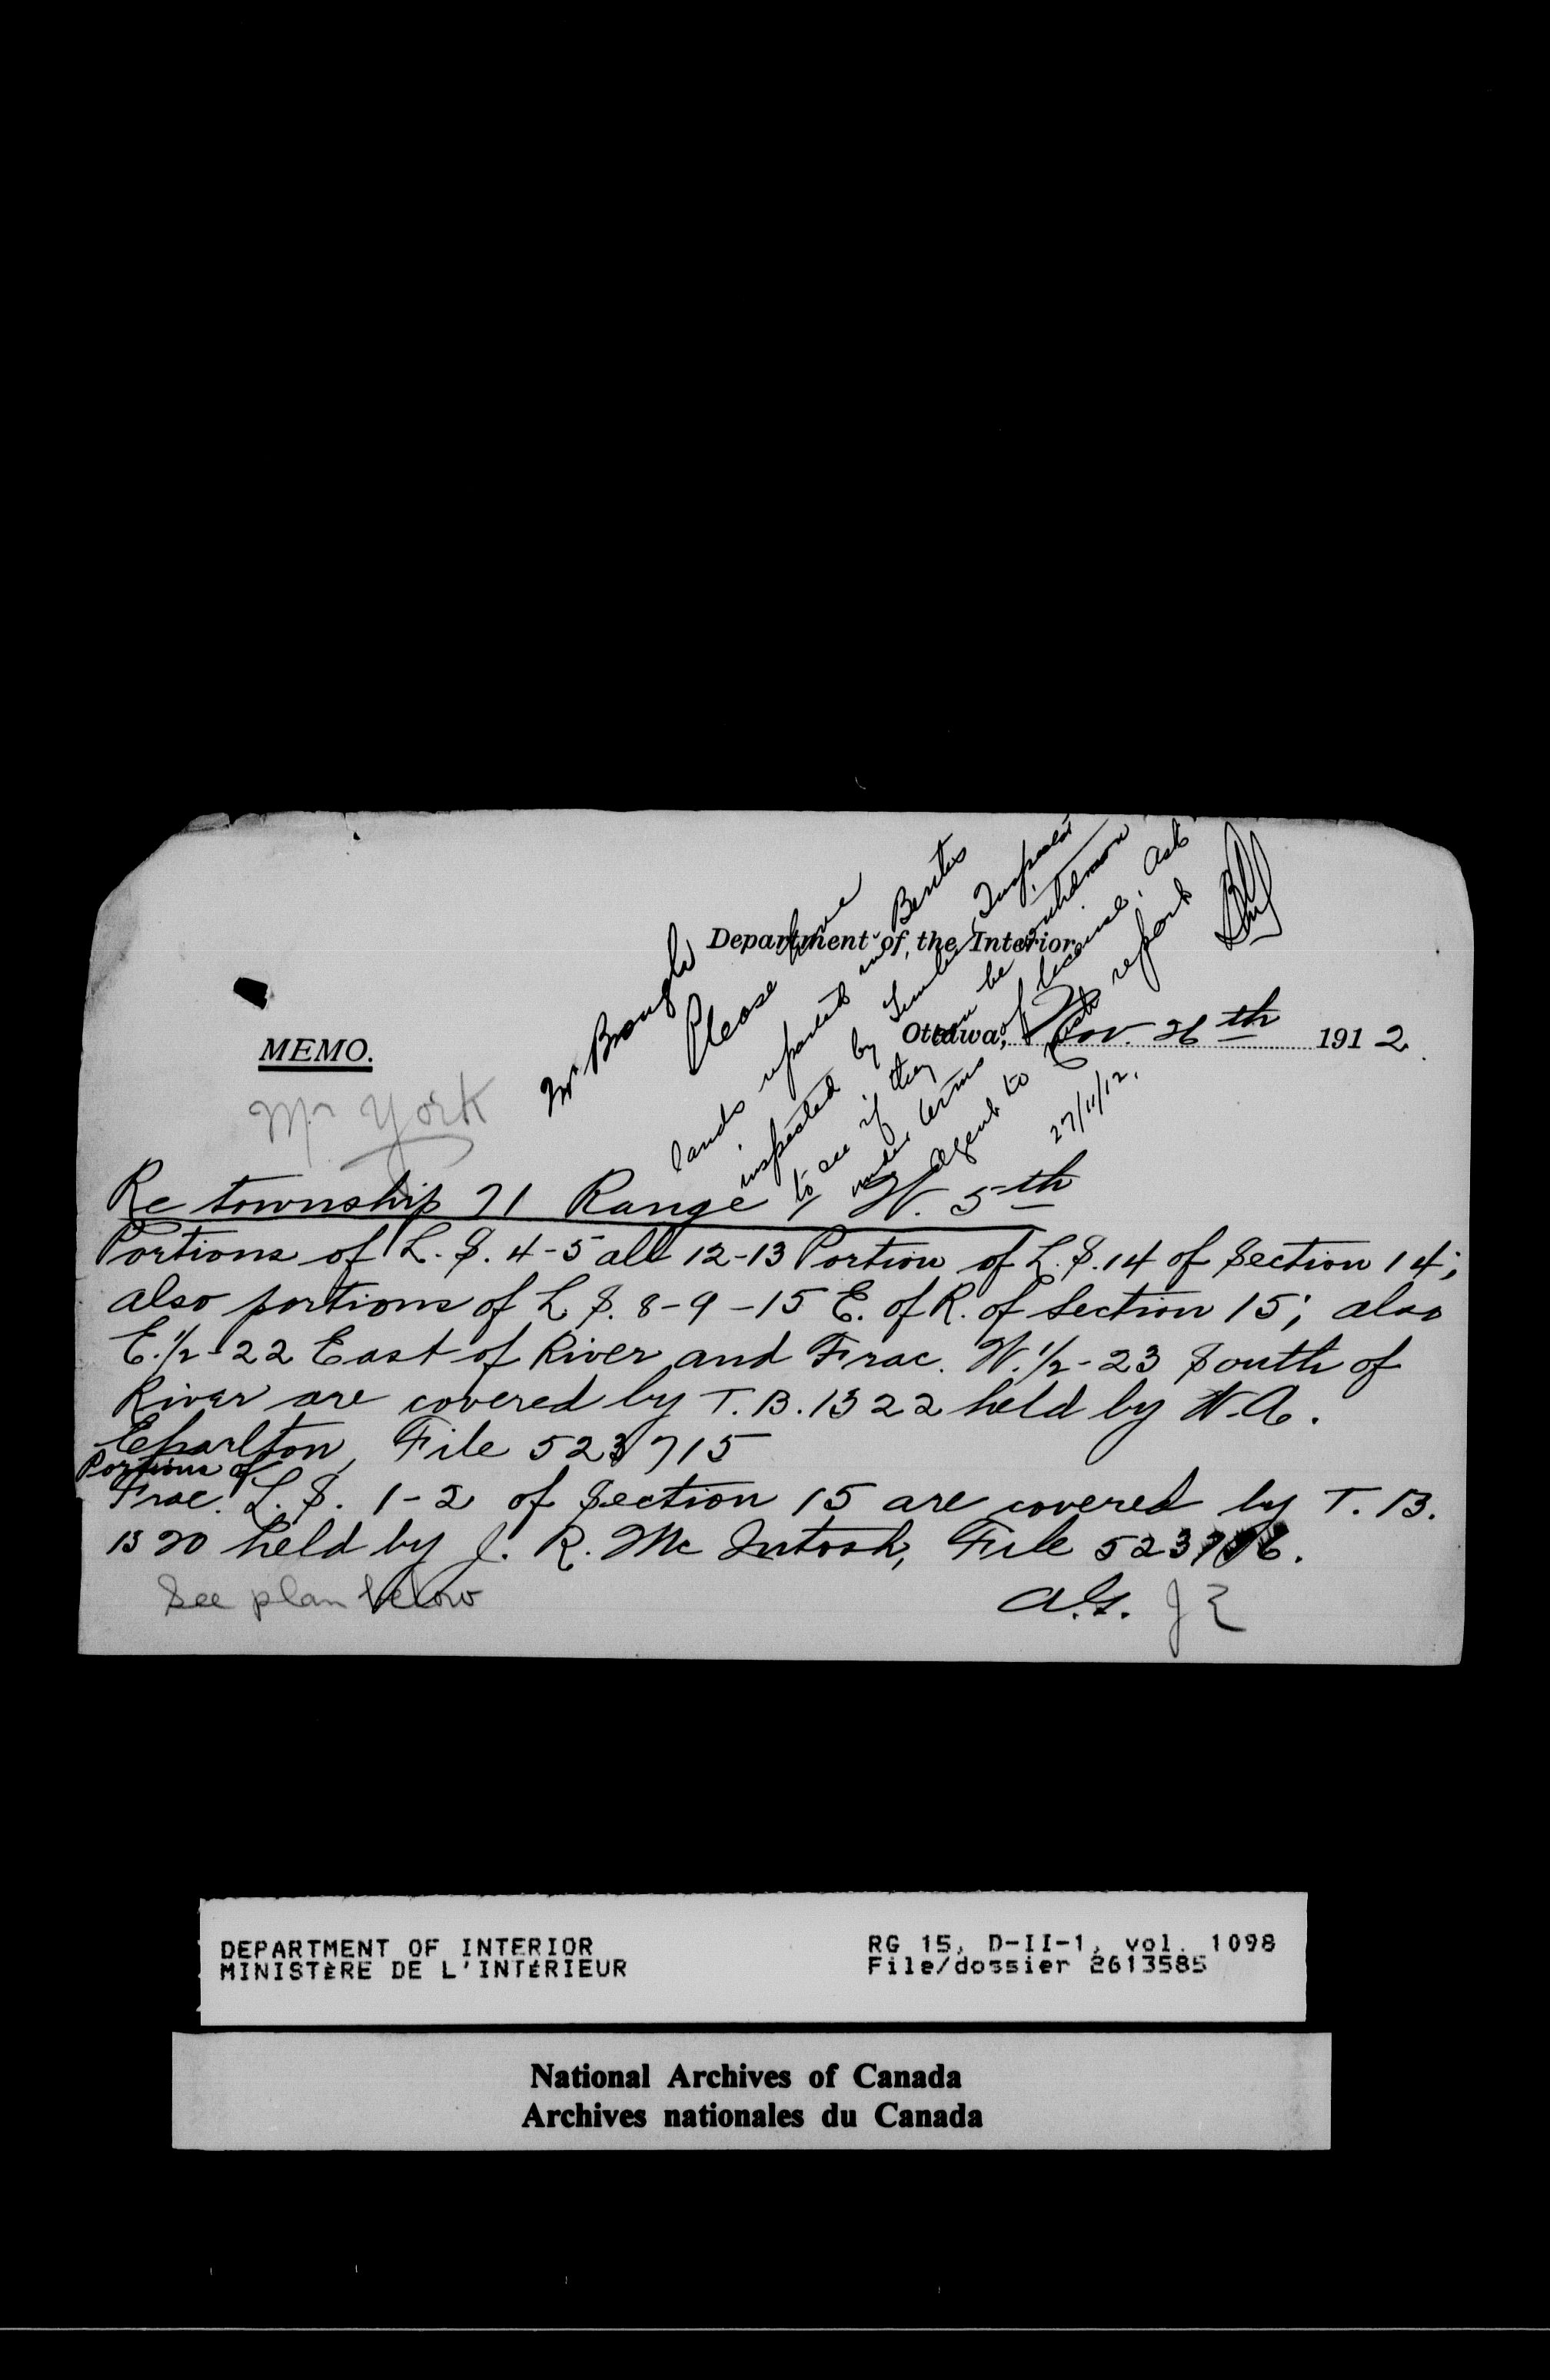 Department of the Interior
Ottawa, Nov. 26th 1912
MEMO.
Mr York
Mr Brough
Please have
lands reported in Berths
inspected by Timber Inspector
to see if they can be withdrawn
under terms of license. Ask
Agent to report
27/11/12.
Re township 71 Range W. 5th
Portions of L. S. 4-5 all 12-13 Portion of L. S. 14 of Section 14;
also portions of L S. 8-9-15 E. of R. of Section 15; also
E. 1/2-22 East of River and Frac. W. 1/2-23 South of
River are covered by T. B. 1322 held by W. A.
Charlton, File 523715
Portions of
Frac. L. S. 1-2 of Section 15 are covered by T. B.
1320 held by J. R. Mc Intosh, File
See plan below
A.G. J E
DEPARTMENT OF INTERIOR
MINISTÈRE DE L'INTÉRIEUR
RG 15, D-II-1, vol. 1098
File/dossier 2613585
National Archives of Canada
Archives nationales du Canada